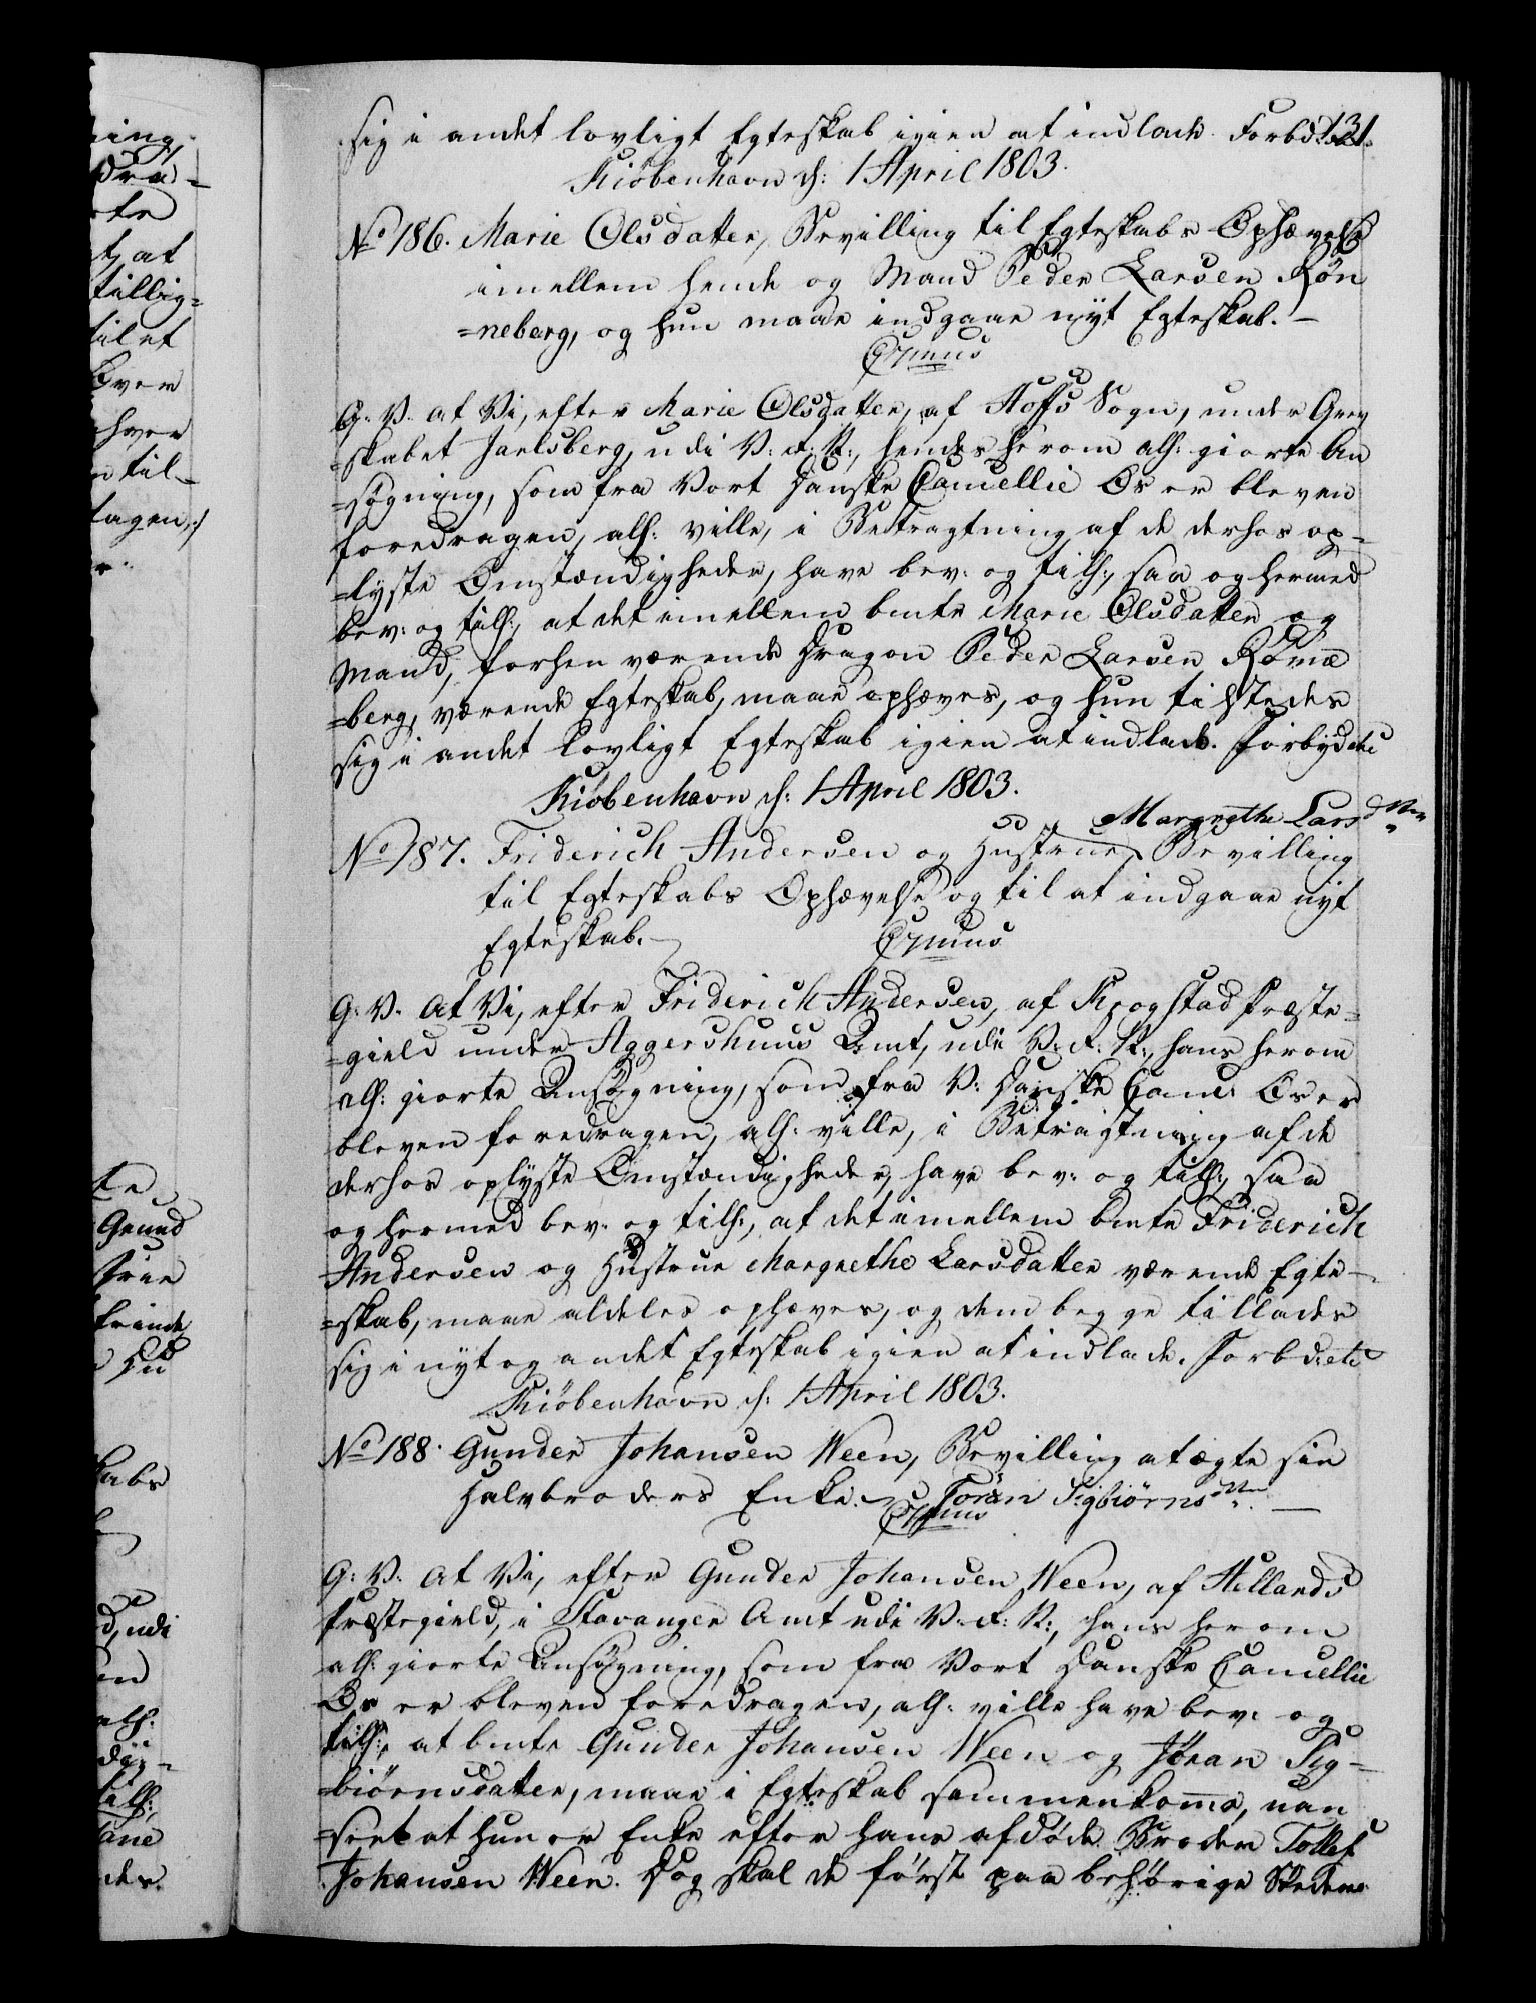 sig i andet lovligt Egteskab igien at indlade. Forbd: 131.
Kiøbenhavn d: 1 April 1803.
No 186. Marie Olsdatter, Bevilling til Egteskabs Ophævelse
imellem hende og Mand Peder Larsen Røn
=neberg, og hun maae indgaae nyt Egteskab. —
G: V. at Vi, efter Marie Olsdatter, af Hoffs Sogn, under Grev
=skabet Jarlsberg, udi V: R: N:, hendes herom all: giorte An
=søgning, som fra Vort Danske Cancellie Os er bleven
foredragen, all: ville, i Betragtning af de derhos op=
=lyste Omstændigheder, have bev: og till:, saa og hermed
bev: og till:, at det imellem bmte Marie Olsdatter og
Mand, forhen værende Dragon Peder Larsen Rønne
=berg, værende Egteskab, maae ophæves, og hun tilstedes
sig i andet lovligt Egteskab igien at indlade. Forbydende
Kiøbenhavn d: 1 April 1803.
Margrethe Larsdtter
No 187. Friderich Andersen og Hustrue, Bevilling
til Egteskabs Ophævelse og til at indgaae nyt
Egteskab.
G: V. at Vi, efter Friderich Andersen, af Krogstad Præste=
=gield under Aggershuus Amt, udi V: R: N:, hans herom
all: giorte Ansøgning, som fra V: Danske Canc: Os er
bleven foredragen, all: ville, i Betragtning af de
derhos oplyste Omstændigheder, have bev: og till:, saa
og hermed bev: og till:, at det imellem bmte Friderich
Andersen og Hustrue Margrethe Larsdatter værende Egte=
=skab, maae aldeles ophæves, og dem begge tillades
sig i nyt og andet Egteskab igien at indlade. Forbd: etc
Kiøbenhavn d: 1 April 1803.
No 188. Gunder Johansen Ween, Bevilling at ægte sin
Halvbroders Enke. Joran Sigbiørnsdtr. —
G: V. at Vi, efter Gunder Johansen Ween, af Hellands
Præstegield, i Stavanger Amt udi V: R: N:, hans herom
all: giorte Ansøgning, som fra Vort Danske Cancellie
Os er bleven foredragen, all: ville have bev: og
till:, at bmte Gunder Johansen Ween og Jöran Sig=
=biörnsdatter, maae i Egteskab sammenkomme, uan
=seet at hun er Enke efter hans afdøde Broder Tollef
Johansen Ween. Dog skal de først paa behørige Steder